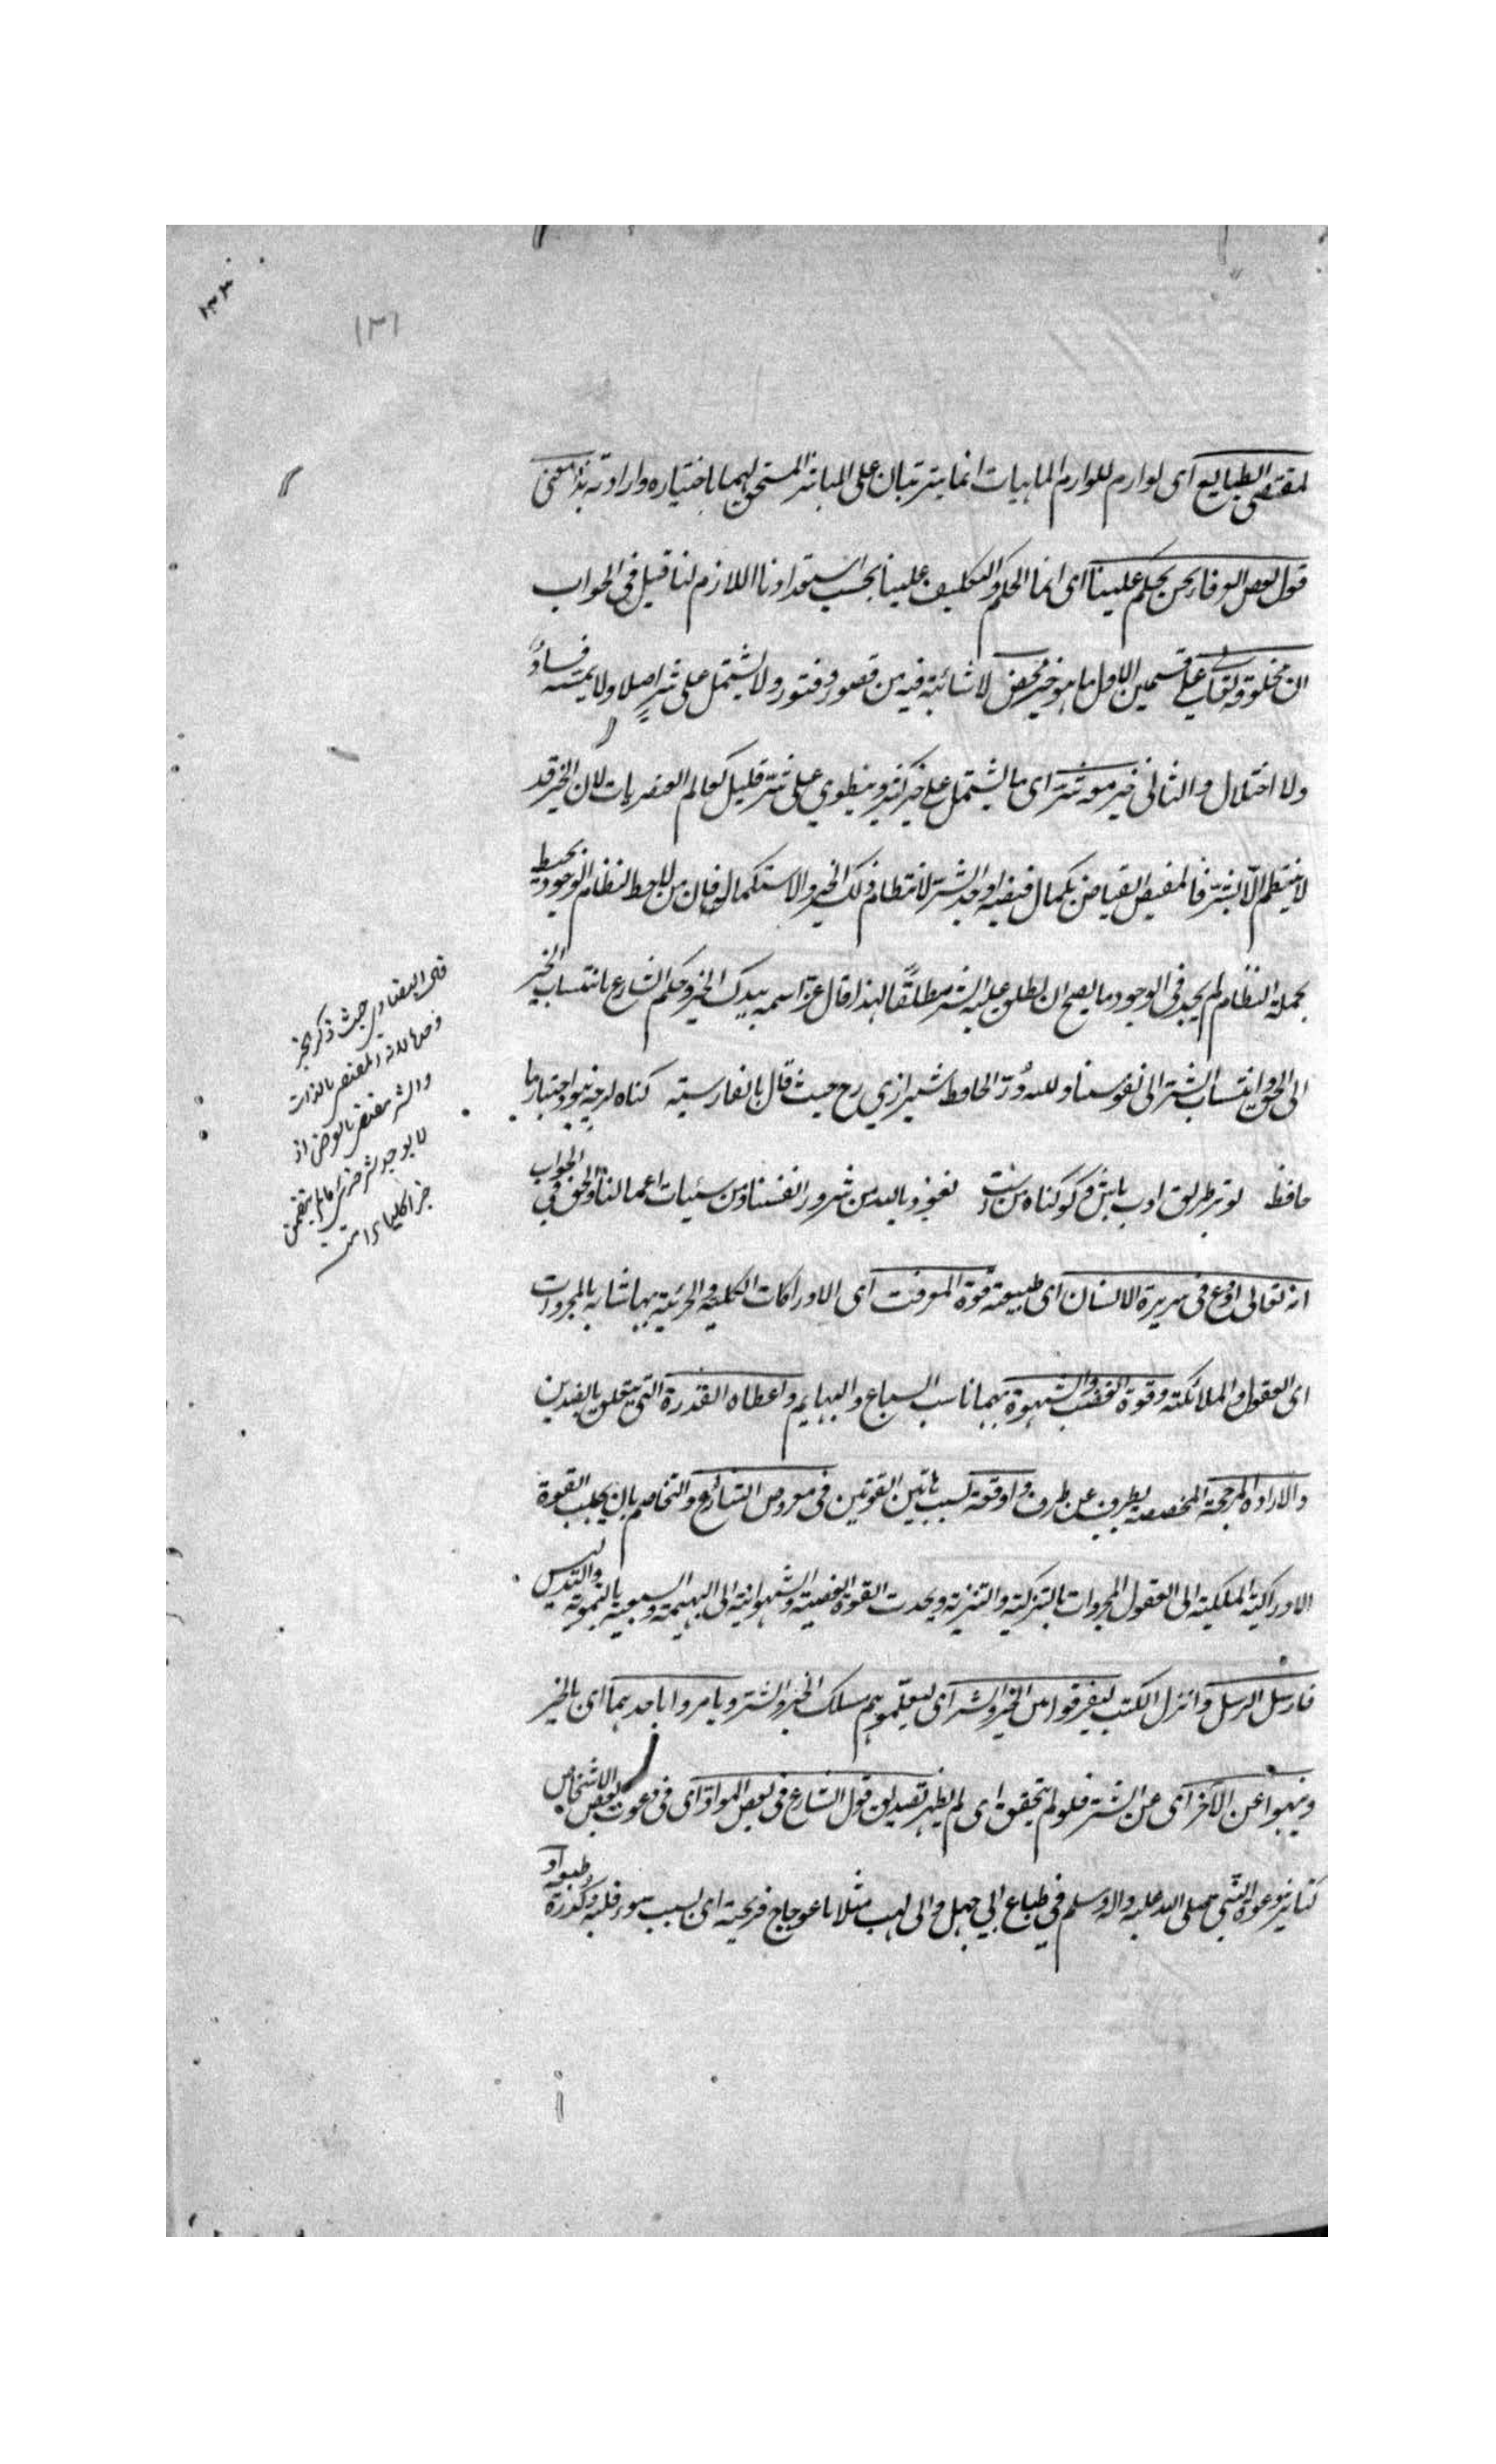 ١٣٣
١٣١
لمقتضى الطبايع اى لوازم للوازم الماهيات انما يترتبان على المباشر المستحق لهما باختياره وارادته هذا معنى
قول بعض العرفا نحن نحكم علينا اى انما الحكم والتكليف علينا بحسب استعدادنا اللازم لنا قيل فى الجواب
ان مخلوقه تعالى على قسمين الاول ما هو خير محض لا شائبة فيه من قصور وفتور ولا يشتمل على شرٍ اصلا ولا يمسه فسادٌ
ولا اختلال والثانى خير معه شر اى ما يشتمل على خير كثير وينطوي على شر قليل كعالم العنصريات لان الخير قد
لا ينتظم الّا بالشر فالمفيض الفياض بكمال فيضه اوجد الشر لانتظام ذلك الخير والاستكمال فان من لاحظ النظام الوجودي يحيط
بجملة النظام لم يجد فى الوجود ما يصح ان يطلق عليه الشر مطلقًا لهذا قال عز اسمه بيدك الخير وحكم الشارع بانتساب الخير
الى الحق وانتساب الشر الى نفوسنا ولله دُرّ الحافظ شيرازي رح حيث قال بالفارسية كناه اكرچه نبود اختيار ما
حافظ تو در طريق ادب باش و كو كناه من است نعوذ بالله من شرور انفسنا ومن سيئات اعمالنا والحق فى الجواب
انه تعالى اودع فى سريرة الانسان اى طبيعته قوة المعرفت اى الادراكات الكلية والجزئية بها شابه بالمجردات
اى العقول والملائكته وقوة الغضب والشهوة بهما ناسب السباع والبهايم واعطاه القدرة التى يتعلق بالضدين
والارادة المرجحة المخصصة بطرف عن طرف واوقعه بسبب هاتين القوتين فى معرض التنازع والتخاصم بان يجلب القوة
الادراكية الملكية الى العقول المجردات بالتزكية والتنزيه ويحدث القوة الغضبية والشهوانية الى البهيمة والسبعية بالتمويه والتدليس
فارسل الرسل وانزل الكتب ليفرقوا من الخير والشر اى ليعلّموهم مسلك الخير والشر ويامروا باحدهما اى بالخير
وينهوا عن الآخر اى عن الشر فلو لم يتحقق اى لم يظهر تصديق قول الشارع فى بعض المواد اى فى دعوت بعض الاشخاص
كتاثير دعوة النبى صلى الله عليه واله وسلم في طباع ابي جهل وابى لهب مثلا باعوجاج قريحته اى بسبب سور قلبه وكدرة طبعه او
قال البيضاوي حيث ذكر الخير
وحدها لانه المقتضى بالذات
والشر مقتضى بالعرض اذ
لا يوجد شر جزئى ما لم يتضمن
خيرا كليا انتهى